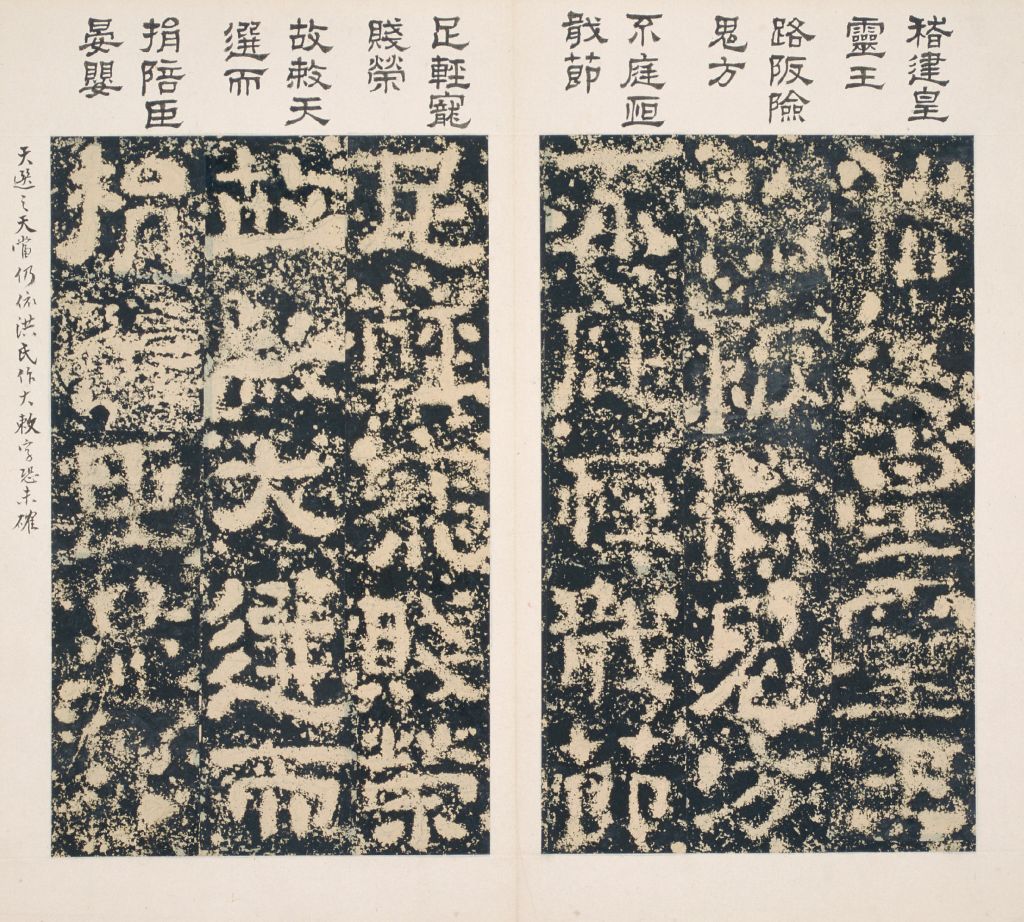 稽建皇
靈王
路阪險
鬼方
不庭恒
戢節
足輕寵
賤榮
故敕天
選而
捐陪臣
晏嬰
稽建皇靈王
路阪險鬼方
不庭恒戢節
足輕寵賤榮
故敕大選而
捐陪臣晏嬰
天選之天當仍依洪氏作大敕字恐未確